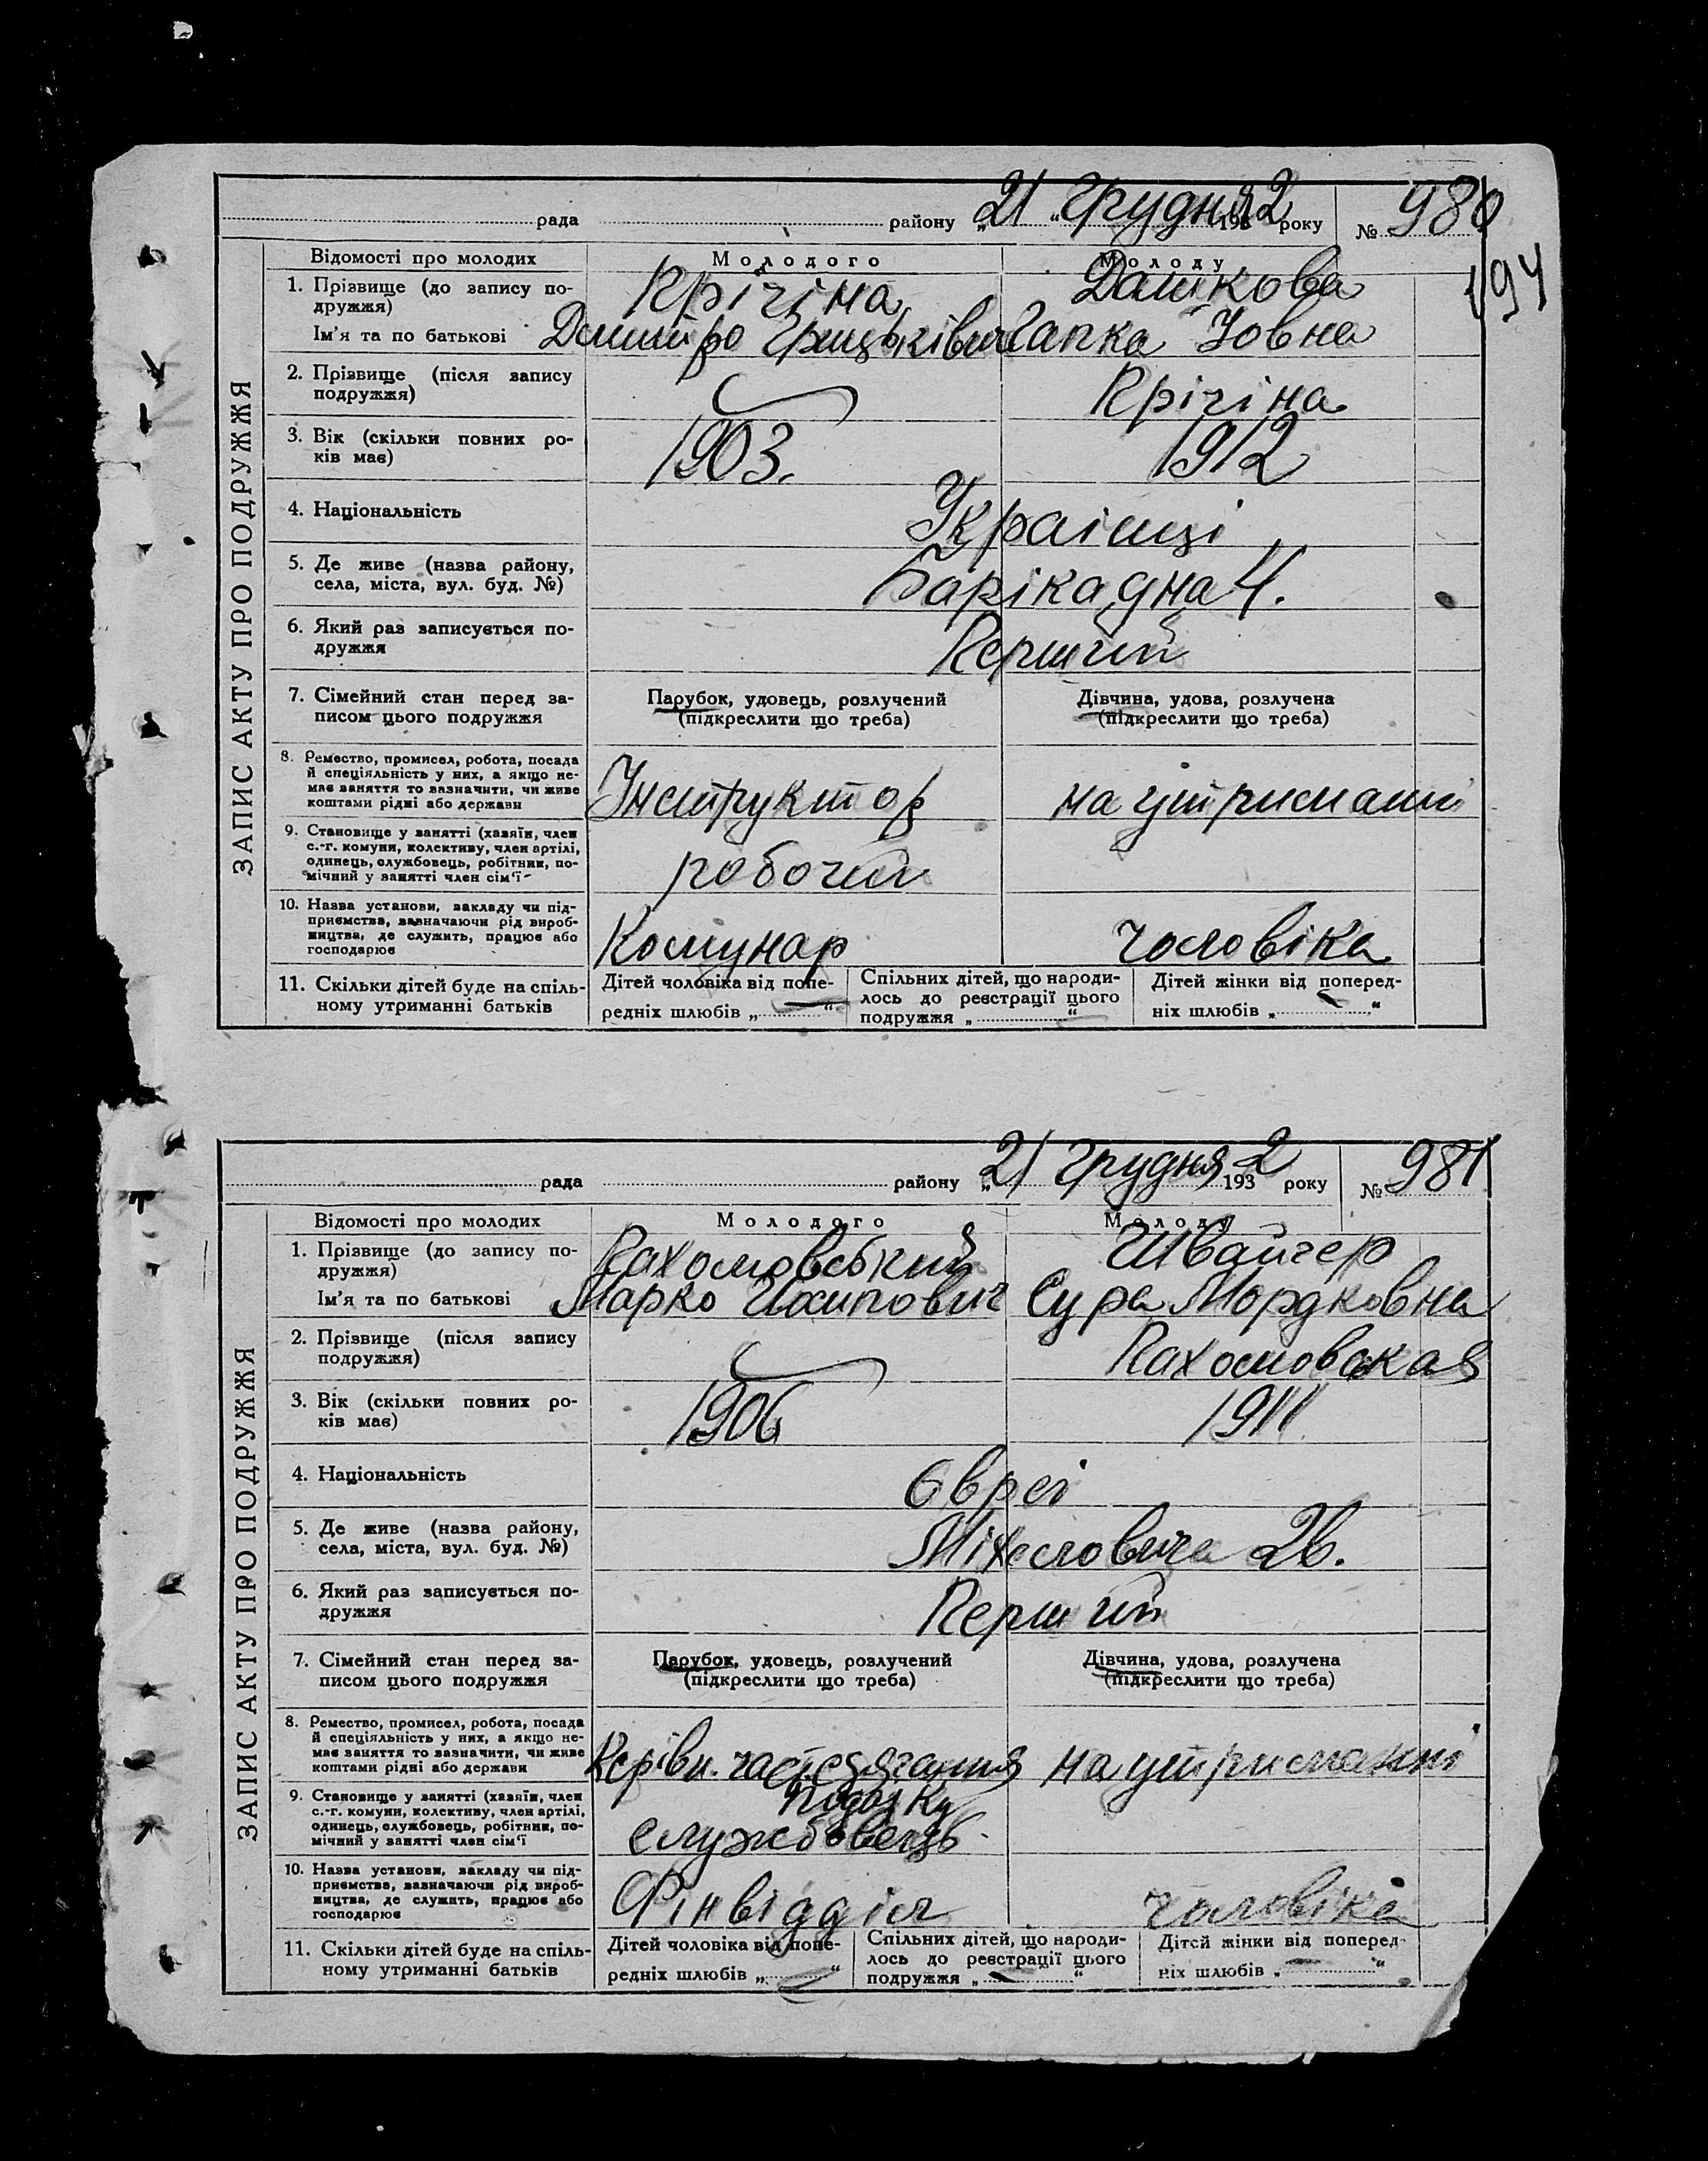 рада района „21“ Грудня 1932 року № 980
194
ЗАПИС АКТУ ПРО ПОДРУЖЖЯ
Відомості про молодих Молодого Молоду
1. Прізвище (до запису подружжя) Крічіна Дашкова
Ім'я та по батькові Дмитро Грицьківич Гапка Йовна
2. Прізвище (після запису подружжя) Крічіна
3. Вік (скільки повних років має) 1903. 1912
4. Національність Українці
5. Де живе (назва району, села, міста, вул. буд. №) Барікадна 4.
6. Який раз записується подружжя Перший
7. Сімейний стан перед записом цього подружжя Парубок, удовець, розлучений (підкреслити що треба) Дівчина, удова, розлучена (підкреслити що треба)
8. Ремество, промисел, робота, посада й спеціяльність у них, а якщо немає заняття то зазначити, чи живе коштами рідні або держави Інструктор на утриманні
9. Становище у занятті (хазяїн, член с.-г. комуни, колективу, член артілі, одинець, службовець, робітник, помічний у занятті член сім'ї робочий
10. Назва установи, закладу чи підприємства, зазначаючи рід виробництва, де служить, працює або господарює Комунар чоловіка
11. Скільки дітей буде на спільному утриманні батьків Дітей чоловіка від попередніх шлюбів „ — “ Спільних дітей, що народилось до реєстрації цього подружжя „ — “ Дітей жінки від попередніх шлюбів „ — “
рада району „21 Грудня 1932 року № 981
ЗАПИС АКТУ ПРО ПОДРУЖЖЯ
Відомості про молодих Молодого Молоду
1. Прізвище (до запису подружжя) Пахомовський Швайгер
Ім'я та по батькові Марко Йосипович Сура Мордковна
2. Прізвище (після запису подружжя) Пахомовская
3. Вік (скільки повних років має) 1906 1911
4. Національність Євреі
5. Де живе (назва району, села, міста, вул. буд. №) Міхесловича 26.
6. Який раз записується подружжя Перший
7. Сімейний стан перед записом цього подружжя Парубок, удовець, розлучений (підкреслити що треба) Дівчина, удова, розлучена (підкреслити що треба)
8. Ремество, промисел, робота, посада й спеціяльність у них, а якщо немає заняття то зазначити, чи живе коштами рідні або держави Керівн. на утриманні
9. Становище у занятті (хазяїн, член с.-г. комуни, колективу, член артілі, одинець, службовець, робітник, помічний у занятті член сім'ї службовець.
10. Назва установи, закладу чи підприємства, зазначаючи рід виробництва, де служить, працює або господарює Фінвідділ чоловіка
11. Скільки дітей буде на спільному утриманні батьків Дітей чоловіка від попередніх шлюбів „ — “ Спільних дітей, що народилось до реєстрації цього подружжя „ — “ Дітей жінки від попередніх шлюбів „ — “